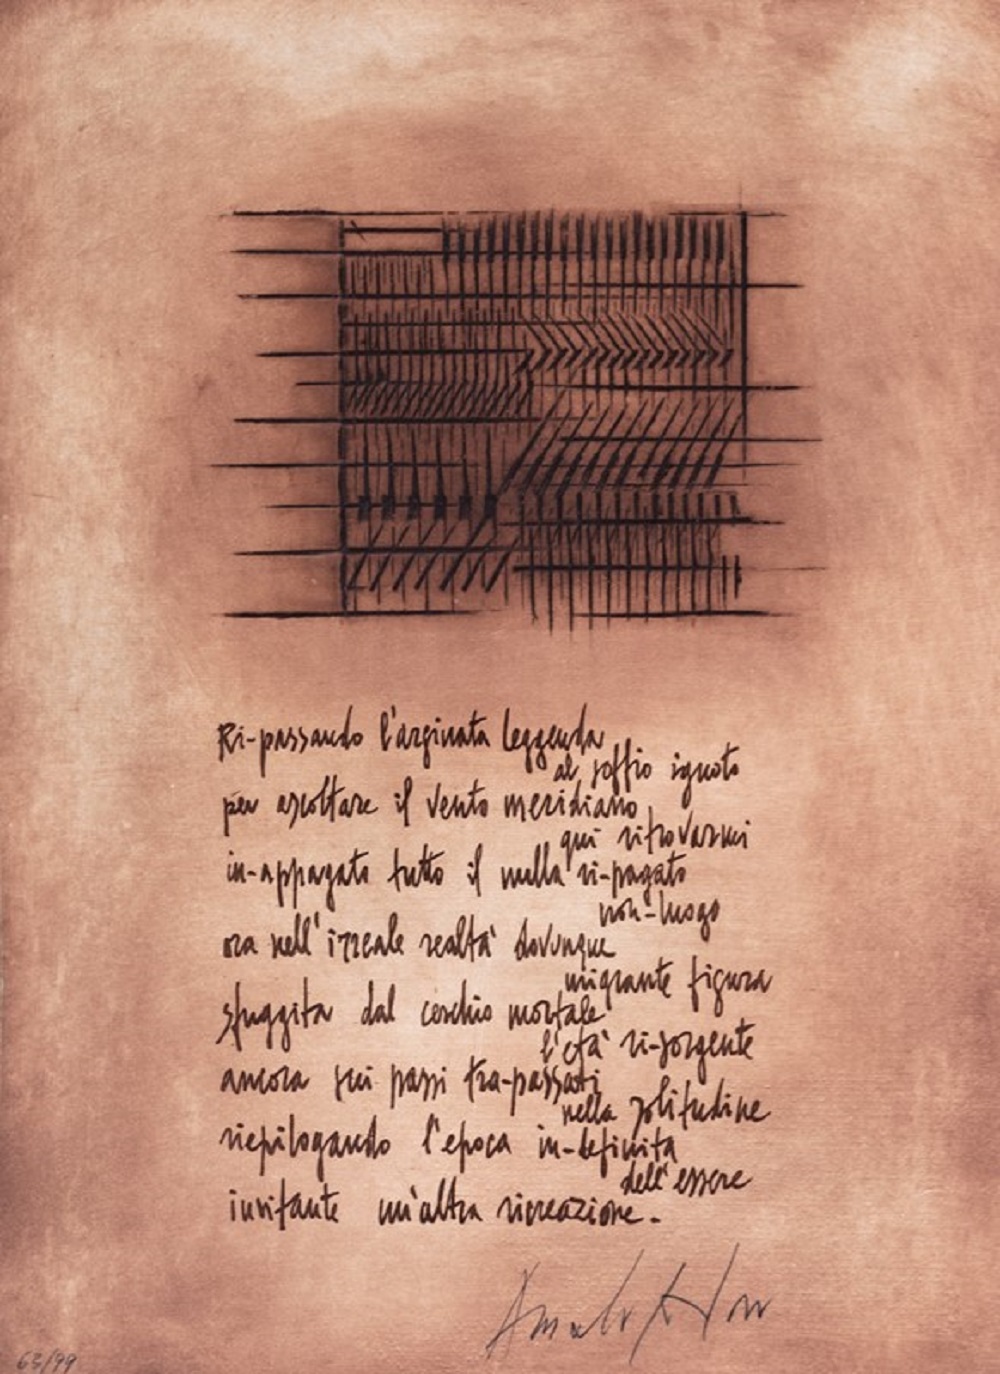 Ri-passando l'arginata leggenda
al soffio ignoto
per ascoltare il vento meridiano
qui ritrovarmi
in-appagato tutto il nulla ri-pagato
non-luogo
ora nell'irreale realtà dovunque
migrante figura
sfuggita dal cerchio mortale
l'età ri-sorgente
ancora sui passi tra-passati
nella solitudine
riepilogando l'epoca in-definita
dell'essere
invitante un'altra ricreazione.-
63/99